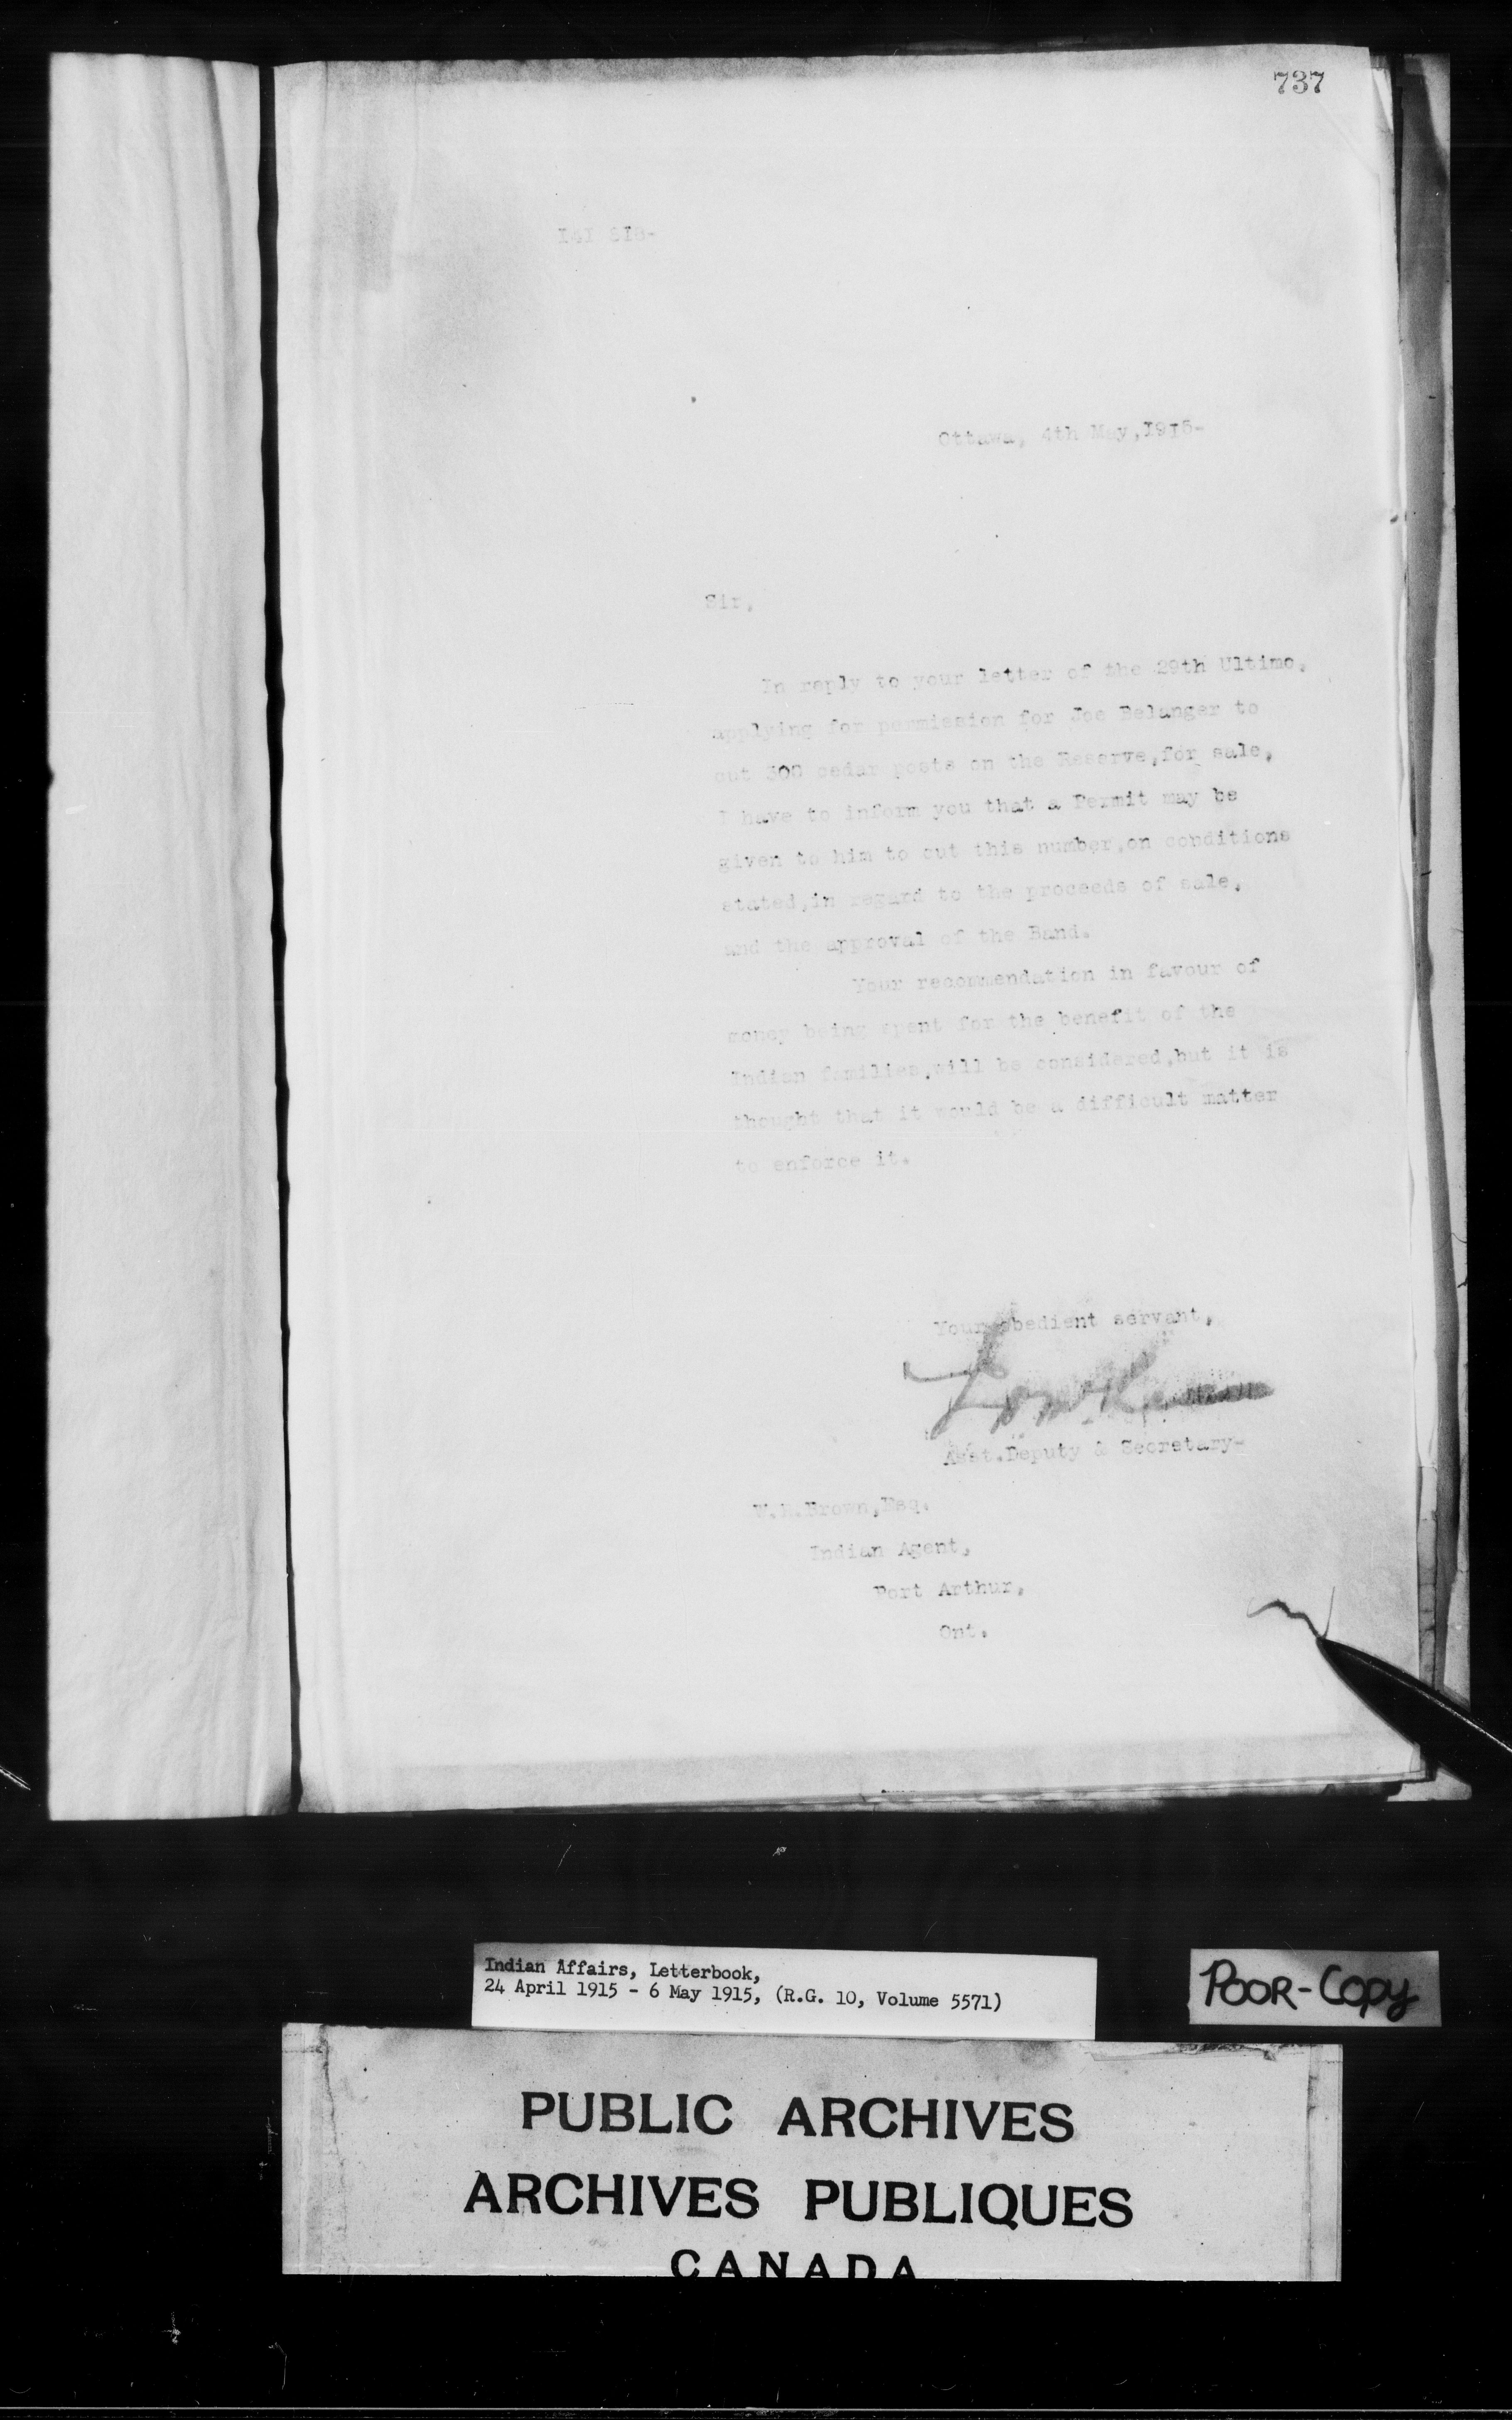 737
Ottawa, 4th May, 1915-
Sir,
In reply to your letter of the 29th Ultimo,
applying for permission for Joe Belanger to
cut 300 cedar posts on the Reserve, for sale,
I have to inform you that a Permit may be
given to him to cut this number, on conditions
stated, in regard to the proceeds of sale,
and the approval of the Band.
Your recommendation in favour of
money being spent for the benefit of the
Indian families, will be considered, but it is
thought that it would be a difficult matter
to enforce it.
Your obedient servant,
Asst. Deputy & Secretary-
W. R. Brown, Esq.
Indian Agent,
Port Arthur,
Ont.
Indian Affairs, Letterbook,
24 April 1915 - 6 May 1915, (R.G. 10, Volume 5571)
POOR-COPY
PUBLIC ARCHIVES
ARCHIVES PUBLIQUES
CANADA